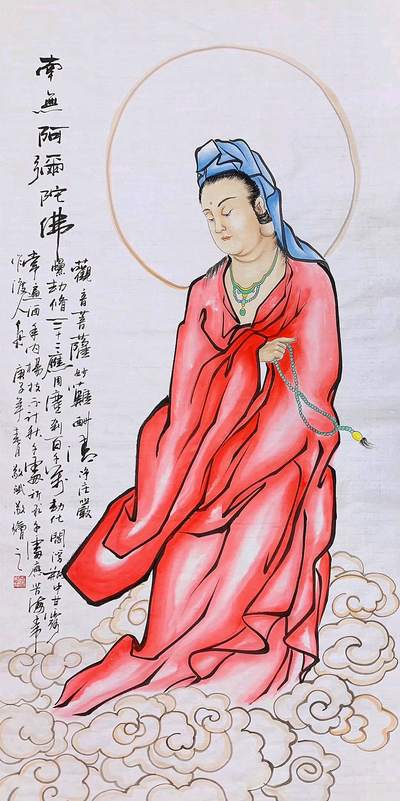 南無阿彌陀佛
觀音菩薩妙難酬清淨莊嚴
累劫修三十二應周塵剎百千萬劫化閻浮瓶中甘露
常遍洒手內楊枝不計秋千處祈求千處應苦海常
作渡人舟庚子年春月敬繪之